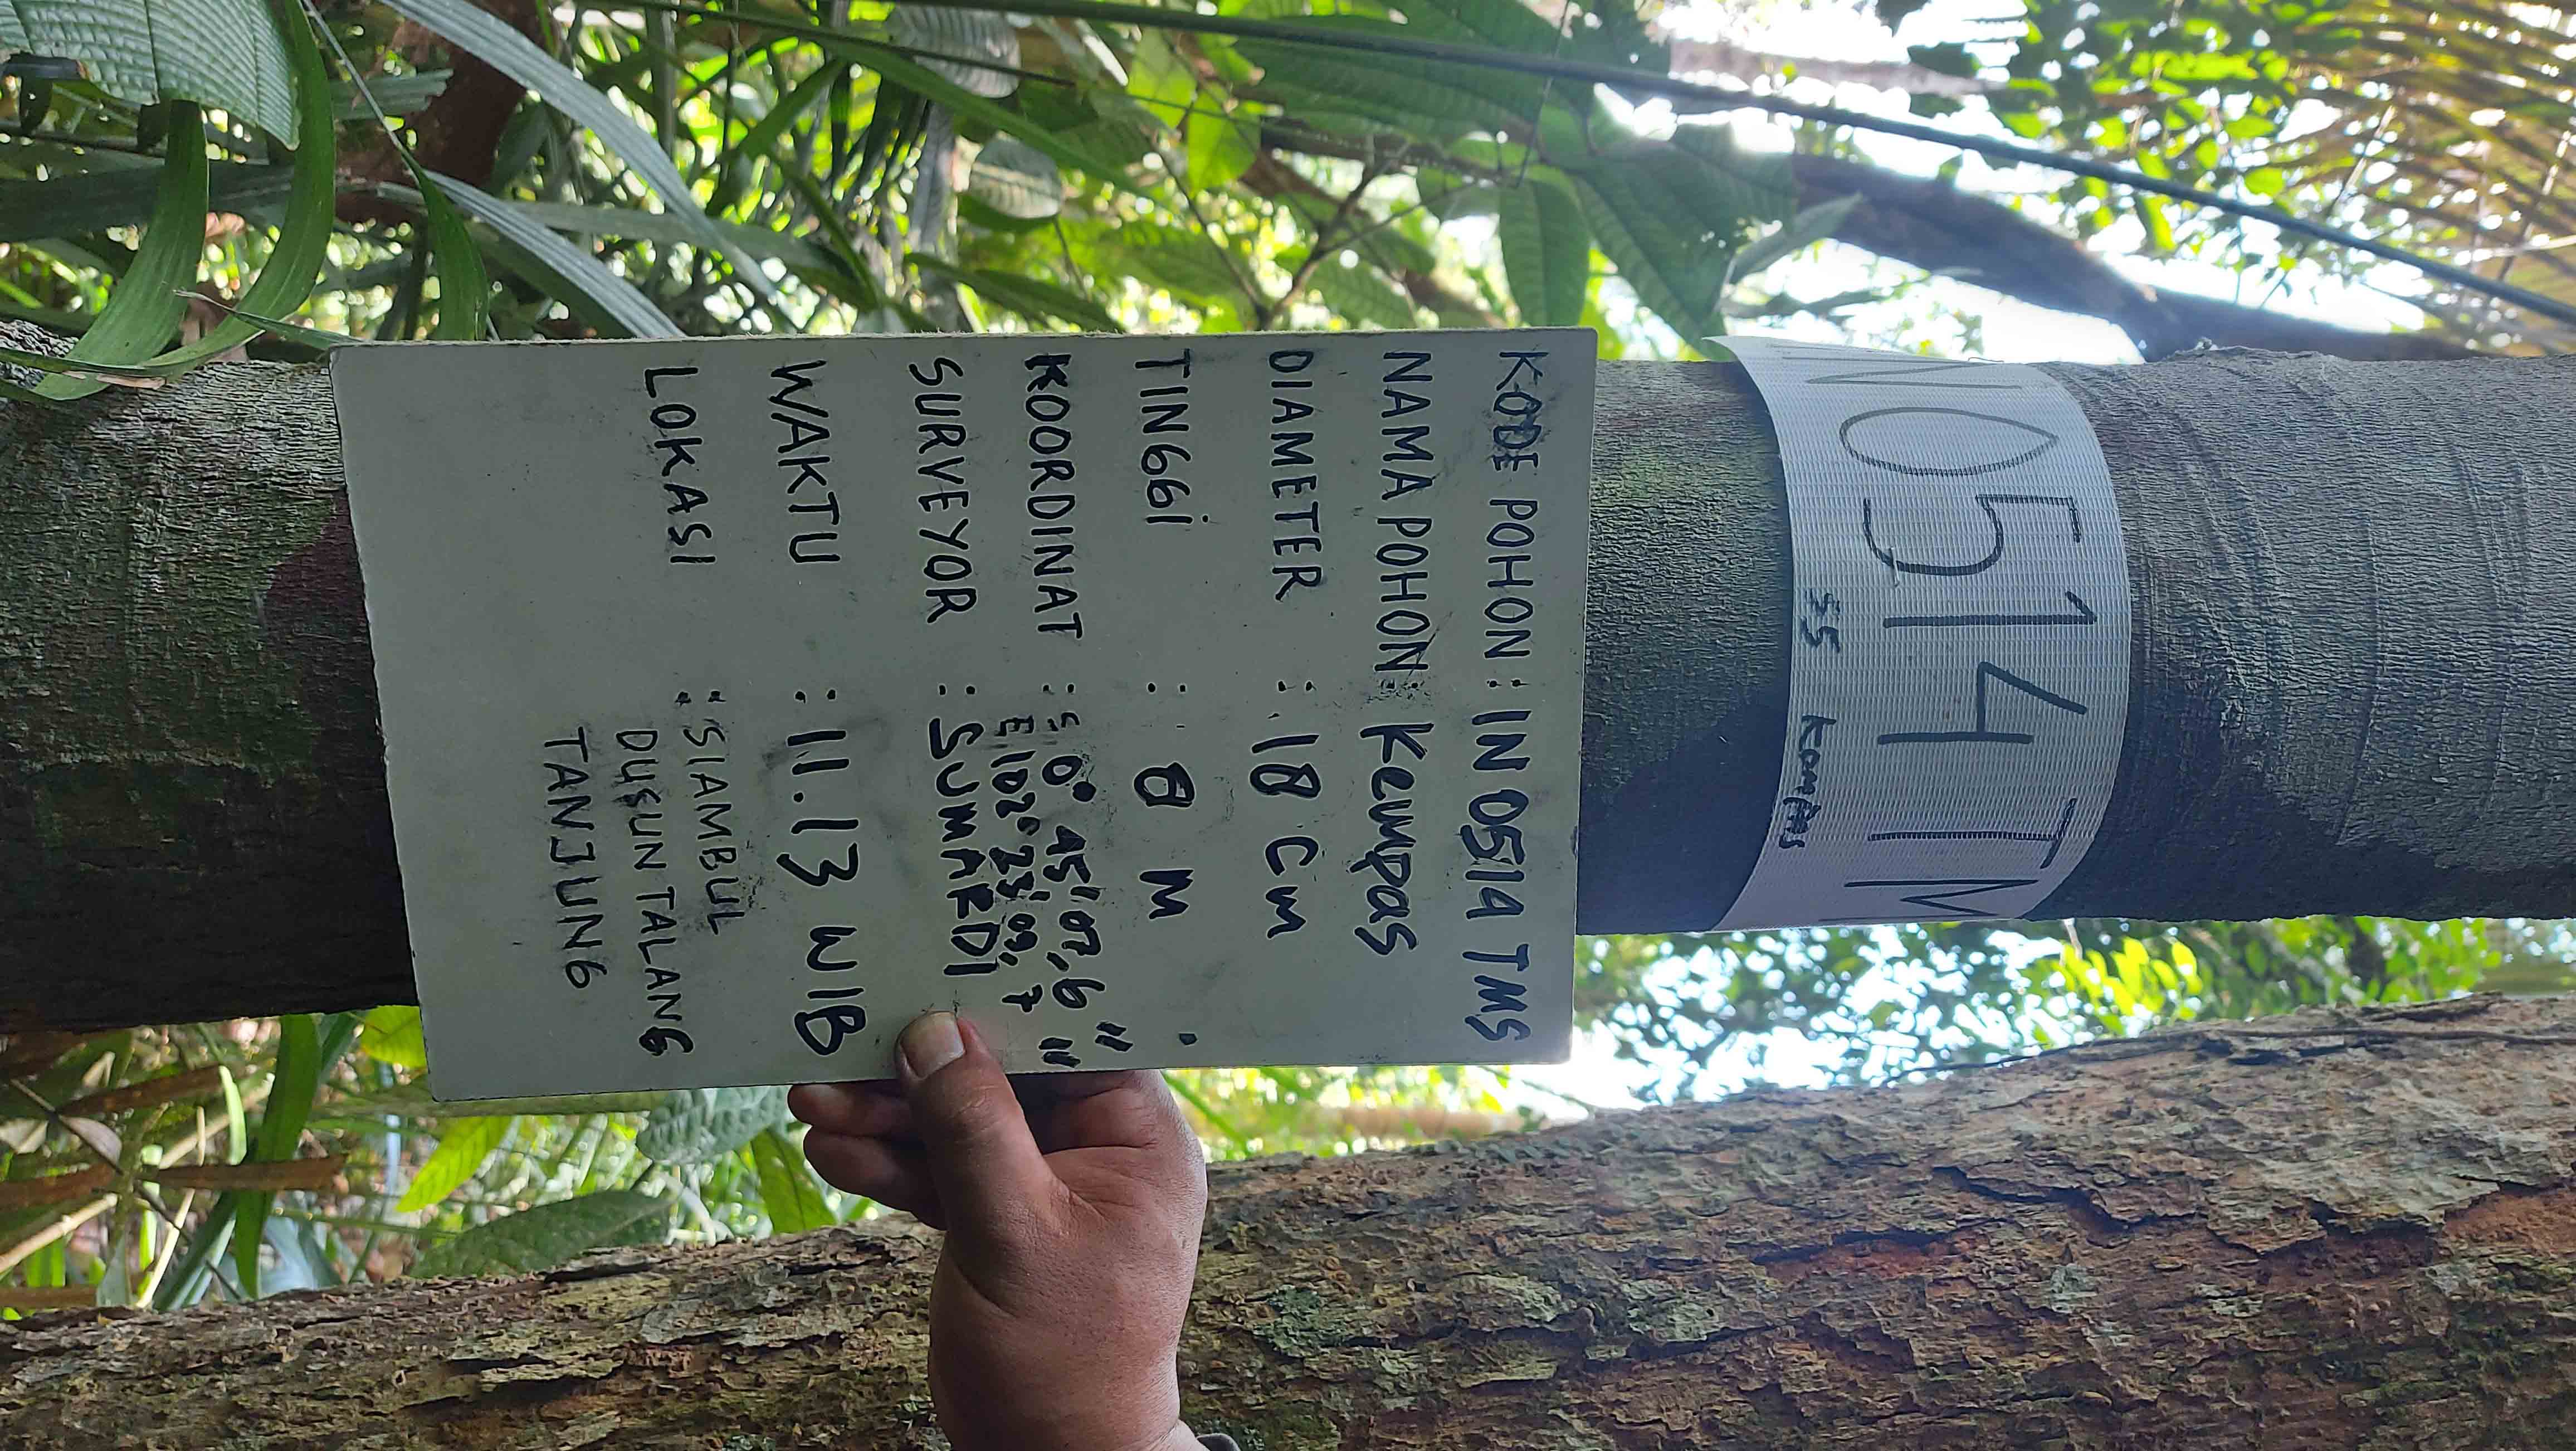 N0514TM
55 Kompas
KODE POHON : IN 0514 TMS
NAMA POHON : Kempas
DIAMETER : 18 Cm
TINGGi : 8 M
KOORDINAT : S 0° 45' 07,6"
E 102° 23' 09,7"
SURVEYOR : SUMARDI
WAKTU : 11.13 WIB
LOKASI : SIAMBUL
DUSUN TALANG
TANJUNG